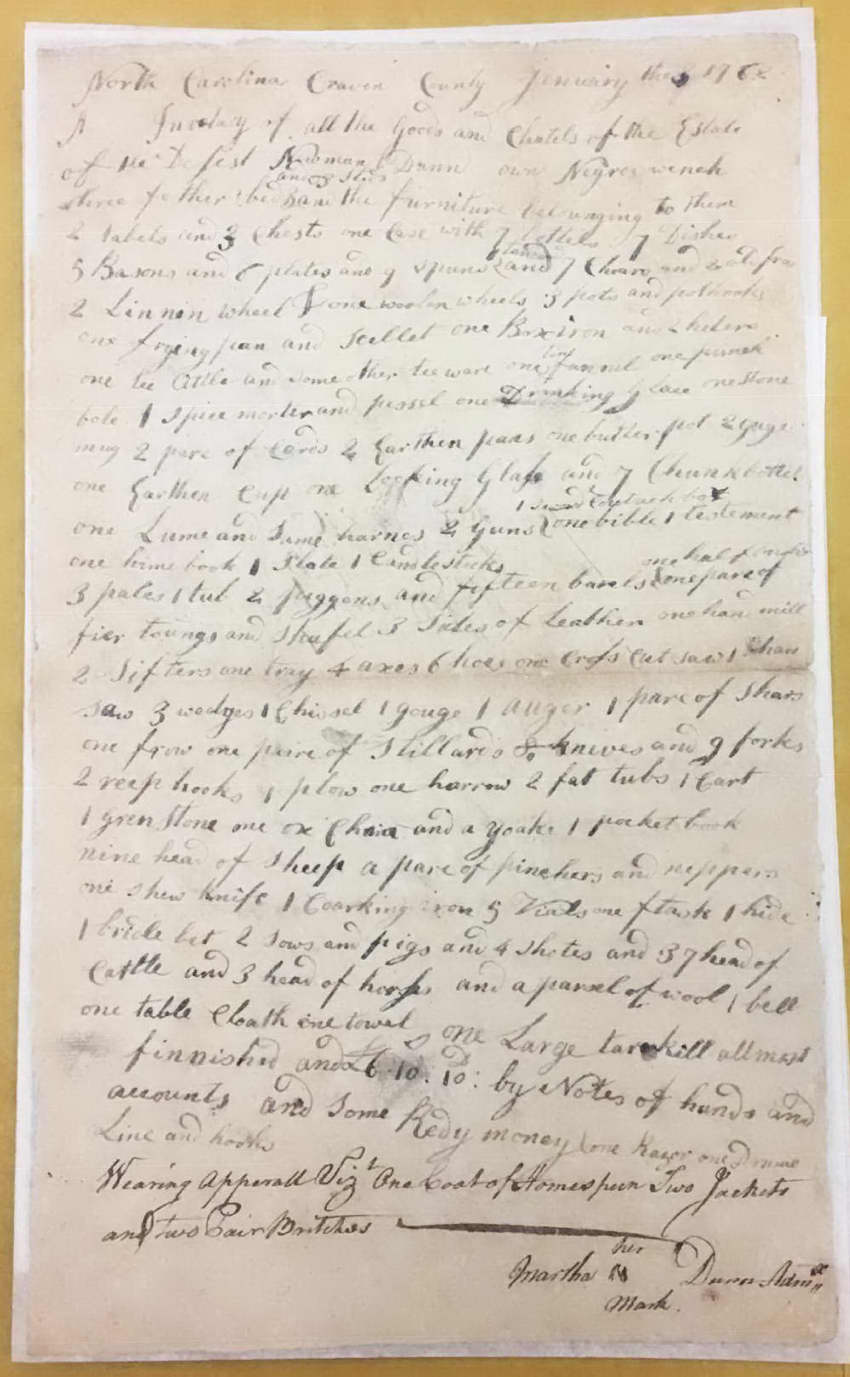 North Carolina Craven County Jenuiry the 17
A Invotary of all the Goods and Chatels of the Estate
of the Desest Newman Dunn own Negro wench
and 3 steds
three fether beds and the furniture belunging to them
2 tabels and 3 Chests one Case with 7 bottels 7 Dishes
5 Basons and 6 plates and 9 spuns and 7 Chears and 2 old
2 Linnin wheel & one woolen wheels 3 pots and pothooks
one frying pan and scellet one Box iron and 2 heters
one tee Cittle and some other tee ware one tin funnel one punch
bole 1 spice morter and pessel one Drinking glace one stone
mug 2 pare of Cards 2 Earthen pans one butter pot 2 guge
one Earthen Cup one Looking Glass and 7 Chunk bottels
one Lume and Sume harnes 2 Guns one bible 1 testement
one hime book 1 slate 1 Candlesticks
one half
3 pales 1 tub 2 piggons and fifteen barels one pare of
fier toungs and shufel 3 Sides of Leather one hand mill
2 Sifters one tray 4 axes 6 hoes one Cross Cut saw 1
saw 3 wedges 1 Chissel 1 gouge 1 auger 1 pare of Shars
one frow one peire of Stillards 8 knives and 9 forks
2 reep hooks 1 plow one harrow 2 fat tubs 1 Cart
1 gren stone one ox Chain and a yoake 1 pocket book
nine head of sheep a pare of pinchers and neppers
one shew knife 1 Coarking iron 5 Vials one flask 1 hide
1 bridle bet 2 sows and pigs and 4 shotes and 37 head of
Cattle and 3 head of horses and a parsel of wool 1 bell
one table Cloath one towel one Large tar kill allmost
finnished and £6. 10. 10: by Notes of hands and
accounts and some Redy money one Rayor one
Line and hooks
Wearing Apperall Vizt One Coat of Homespun Two Jackets
and two Pair Britches
Martha her Dunn Admx
Mark.